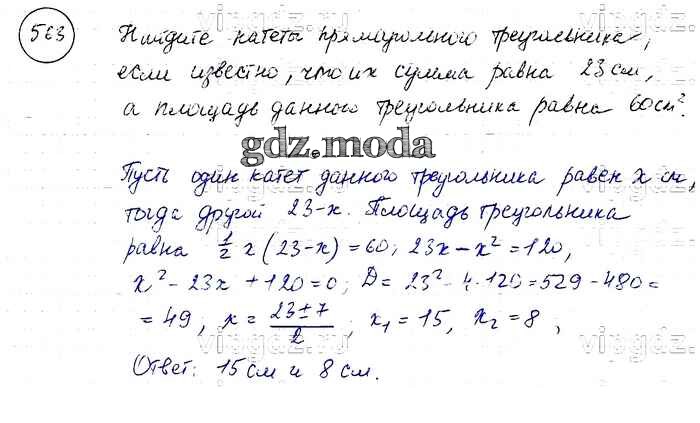 563
Найдите катеты прямоугольного треугольника,
если известно, что их сумма равна 23 см,
а площадь данного треугольника равна 60 см².
gdz.moda
Пусть один катет данного треугольника равен x см,
тогда другой 23-x. Площадь треугольника
равна 1/2 x (23-x) = 60; 23x - x² = 120,
x² - 23x + 120 = 0; D = 23² - 4·120 = 529 - 480 =
= 49; x = (23±7)/2; x₁ = 15, x₂ = 8,
Ответ: 15 см и 8 см.